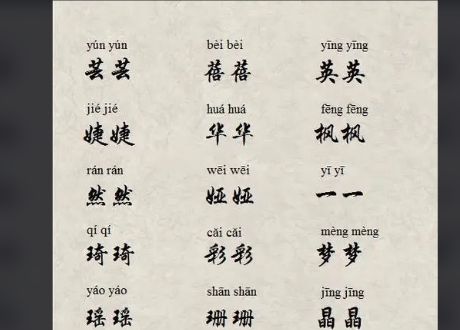 yún yún bèi bèi yīng yīng
芸芸 蓓蓓 英英
jié jié huá huá fēng fēng
婕婕 华华 枫枫
rán rán wēi wēi yī yī
然然 娅娅 一一
qí qí cǎi cǎi mèng mèng
琦琦 彩彩 梦梦
yáo yáo shān shān jīng jīng
瑶瑶 珊珊 晶晶